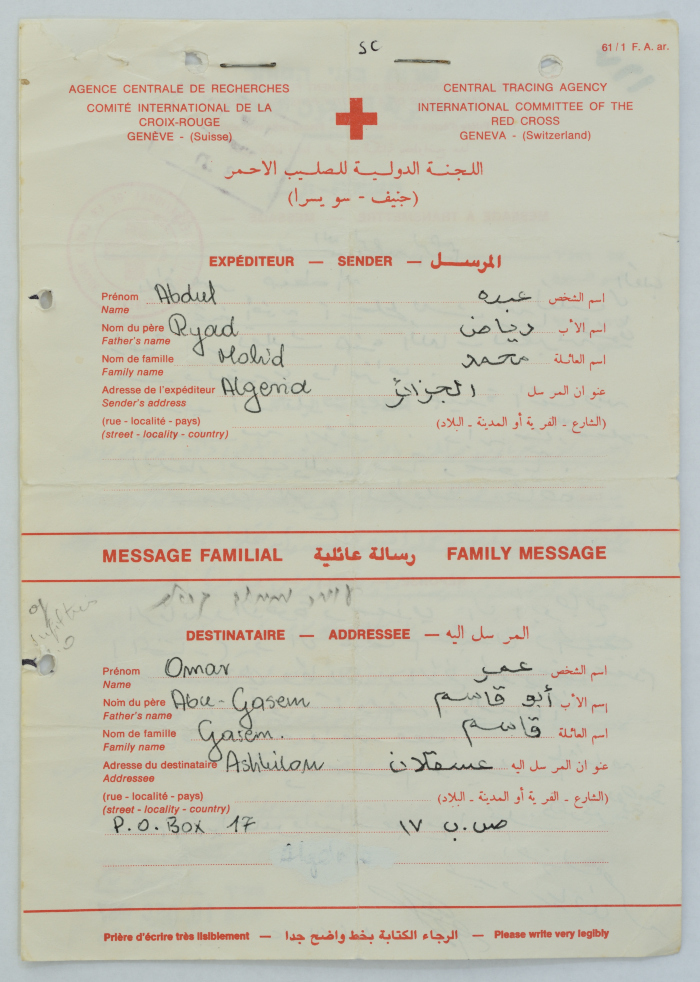 SC
61/1 F. A. ar.
AGENCE CENTRALE DE RECHERCHES
COMITÉ INTERNATIONAL DE LA
CROIX-ROUGE
GENÈVE - (Suisse)
CENTRAL TRACING AGENCY
INTERNATIONAL COMMITTEE OF THE
RED CROSS
GENEVA - (Switzerland)
اللجنة الدولية للصليب الاحمر
(جنيف - سويسرا)
EXPÉDITEUR — SENDER — المرسل
Prénom Abdul عبده اسم الشخص
Name
Nom du père Ryad رياض اسم الأب
Father's name
Nom de famille Mohid محمد اسم العائلة
Family name
Adresse de l'expéditeur Algeria الجزائر عنوان المرسل
Sender's address
(rue - localité - pays) (الشارع - القرية أو المدينة - البلاد)
(street - locality - country)
MESSAGE FAMILIAL رسالة عائلية FAMILY MESSAGE
DESTINATAIRE — ADDRESSEE — المرسل اليه
Prénom Omar عمر اسم الشخص
Name
Nom du père Abu-Gasem أبو قاسم إسم الأب
Father's name
Nom de famille Gasem. قاسم اسم العائلة
Family name
Adresse du destinataire Ashkilon عسقلان عنوان المرسل اليه
Addressee
(rue - localité - pays) (الشارع - القرية أو المدينة - البلاد)
(street - locality - country)
P.O. Box 17 ص.ب ١٧
Prière d'écrire très lisiblement — الرجاء الكتابة بخط واضح جدا — Please write very legibly